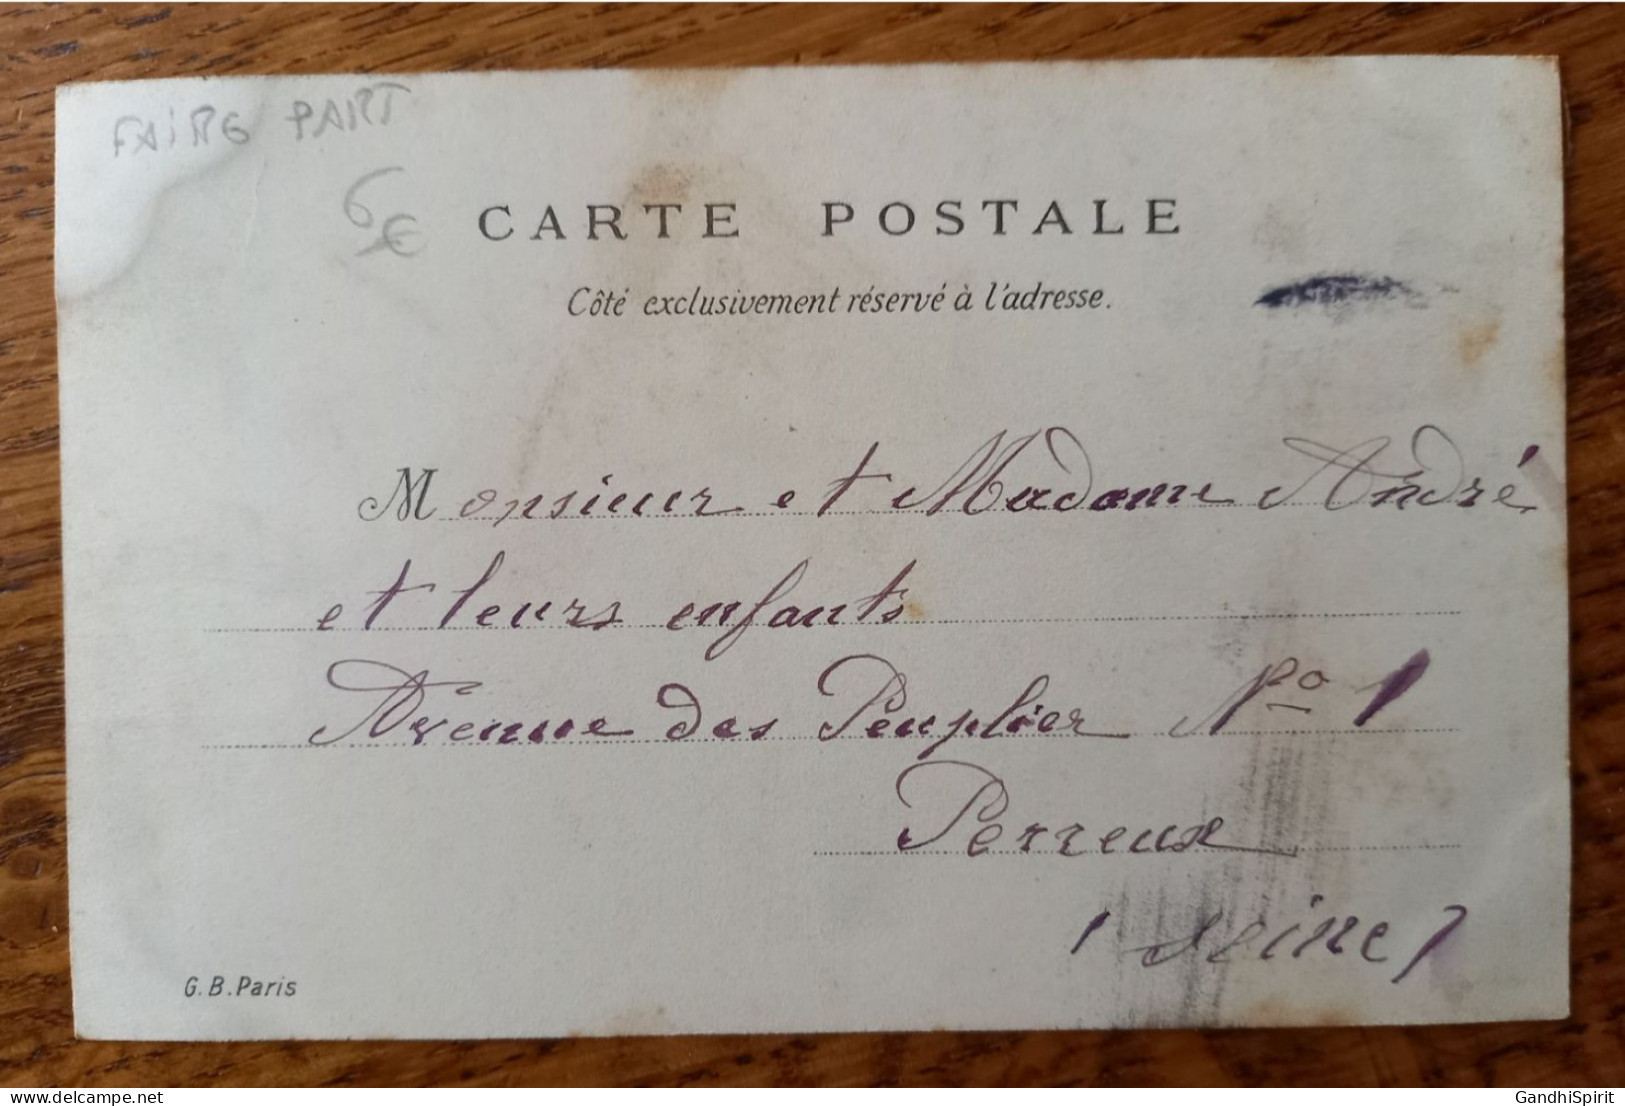 FAIRE PART
6€
CARTE POSTALE
Côté exclusivement réservé à l'adresse.
Monsieur et Madame André
et leurs enfants
Avenue des Peuplier No 1
Perreux
(Seine)
G.B. Paris
delcampe.net
GandhiSpirit